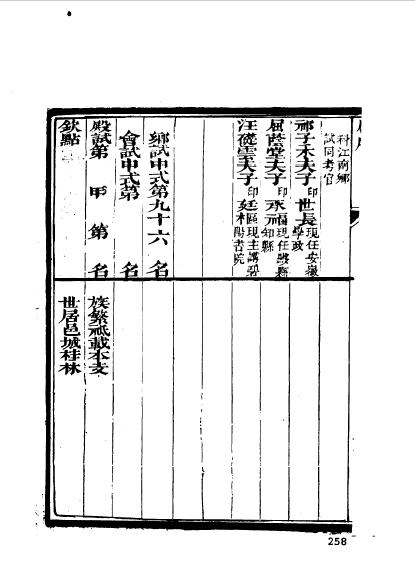 科江南鄉
試同考官
祁子木夫子印世長現任安徽
學政
屈蔭堂夫子印承福現任
知縣
汪夫子印廷現主講
書院
鄉試中式第九十六名
會試中式第 名
殿試第 甲第 名
欽點
族繁祗載本支
世居邑城桂林
258